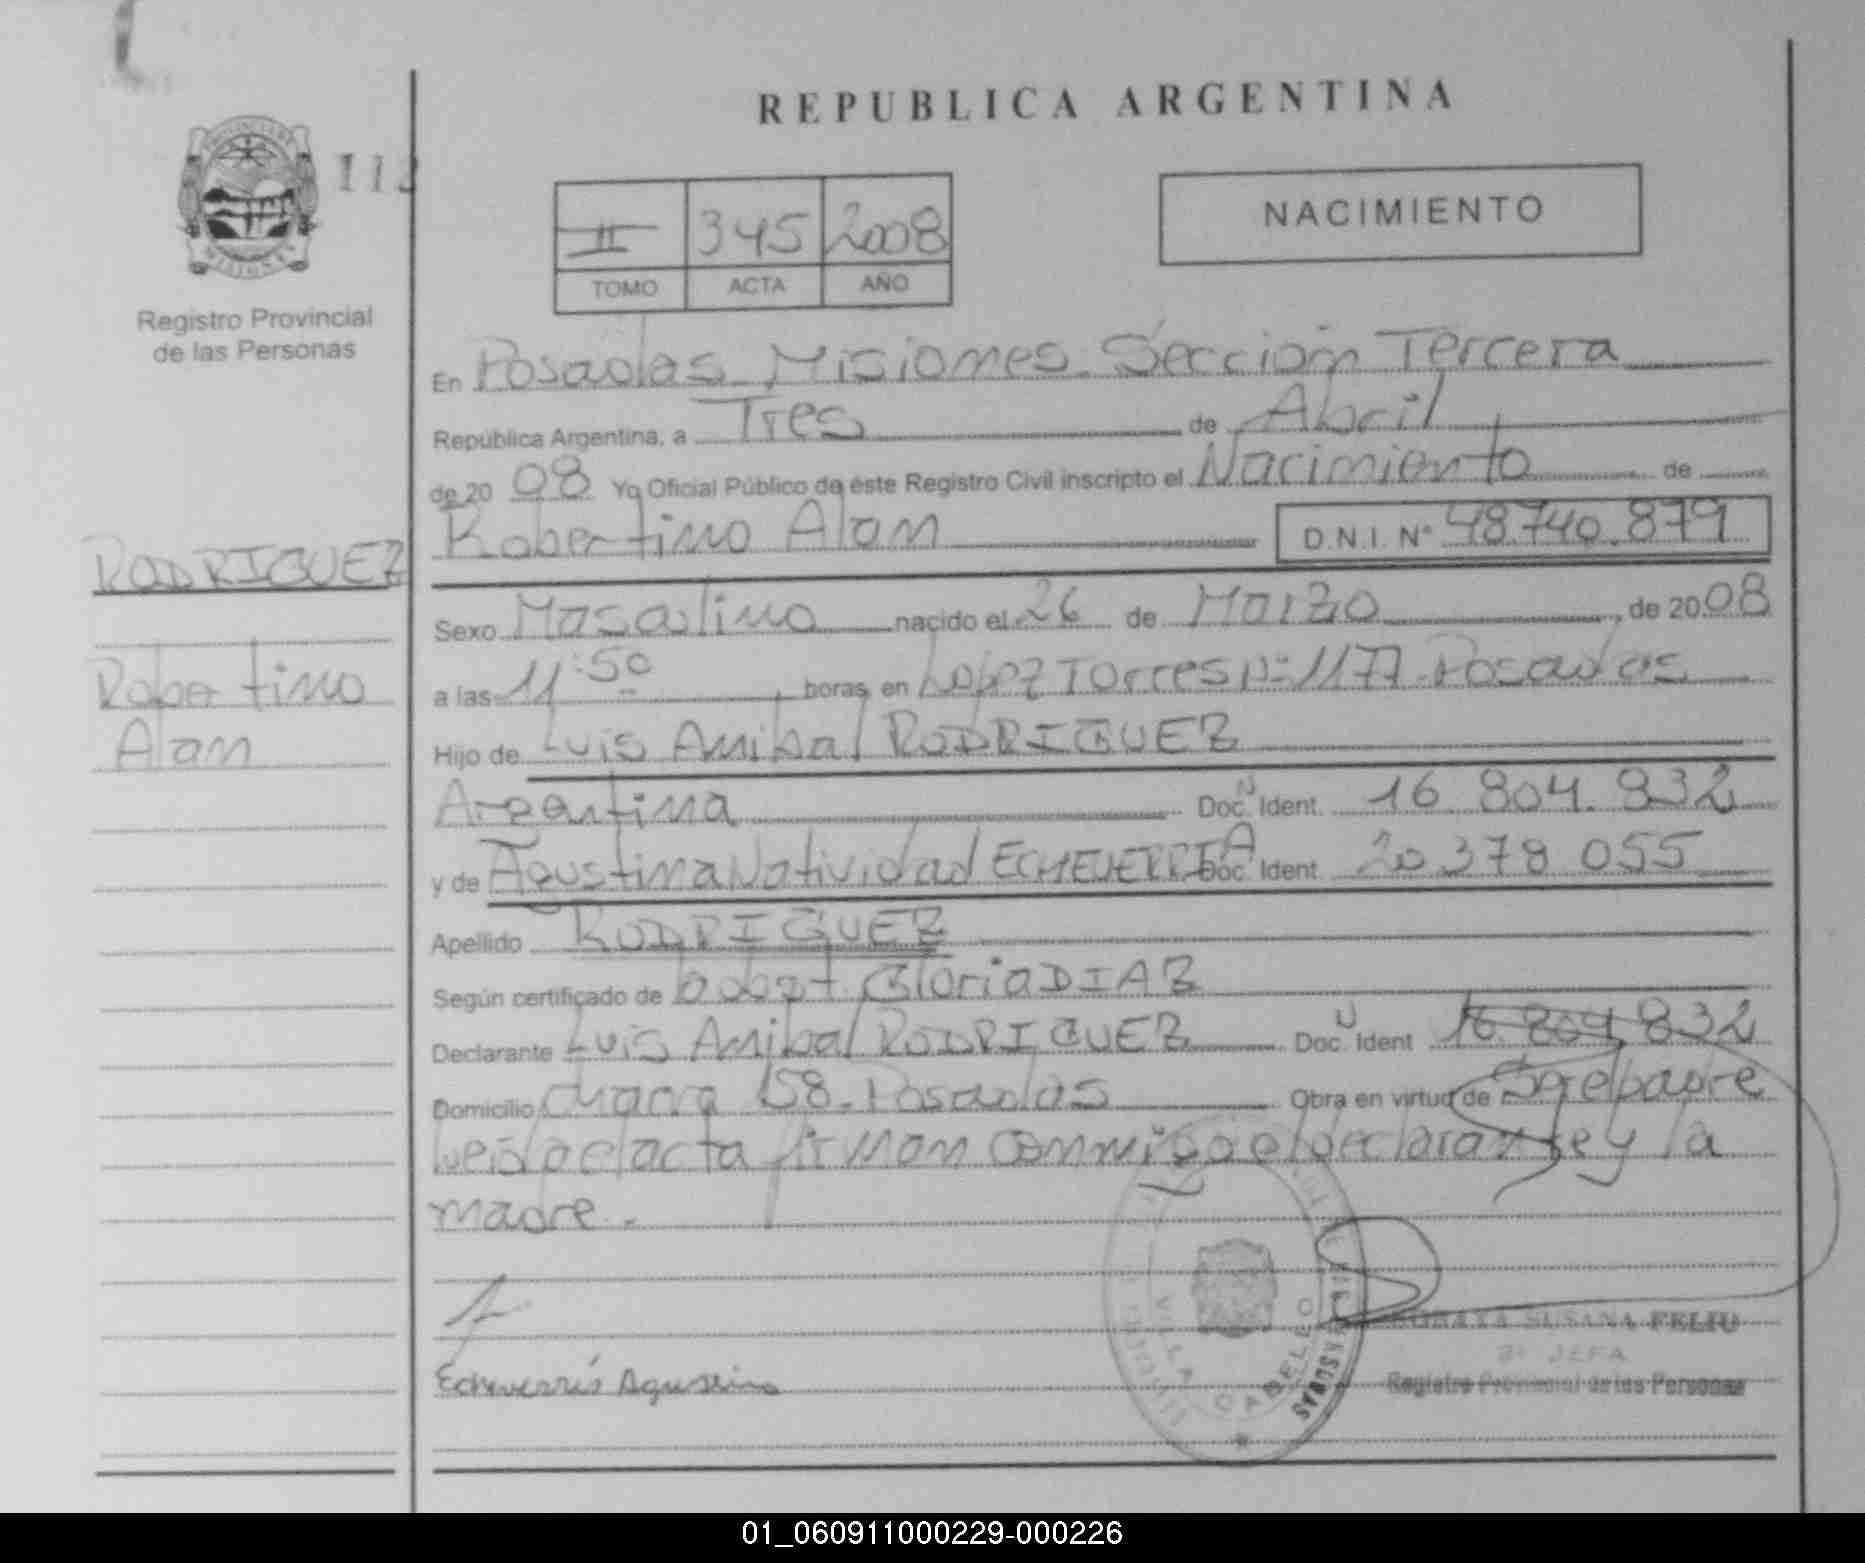 REPUBLICA ARGENTINA
113
NACIMIENTO
II 345 2008
TOMO ACTA AÑO
Registro Provincial
de las Personas
En Posadas Misiones Sección Tercera
República Argentina, a Tres de Abril
de 20 08 Yo Oficial Público de éste Registro Civil inscripto el Nacimiento de
Robertino Alan D.N.I. Nº 48.740.879
RODRIGUEZ
Sexo Masculino nacido el 26 de Marzo, de 20 08
Robertino
Alan
a las 11:50, horas, en Lopez Torres Nº 1177 - Posadas
Hijo de Luis Anibal RODRIGUEZ
Argentina Doc. Ident. 16.804.832
y de Agustina Natividad ECHEVERRIA Doc. Ident. 20.378.055
Apellido RODRIGUEZ
Según certificado de Gloria DIAZ
Declarante Luis Anibal RODRIGUEZ Doc. Ident 16.804.832
Domicilio Chacra 158 - Posadas Obra en virtud de Ser el padre
Leída el acta firman conmigo el declarante y la
madre.-
Echeverría Agustina
VILLA CABELLO
SUSANA FELIU
JEFA
Registro Provincial de las Personas
01_060911000229-000226